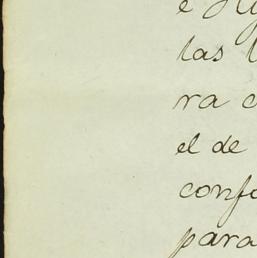 e
las
ra
el de
conf
para